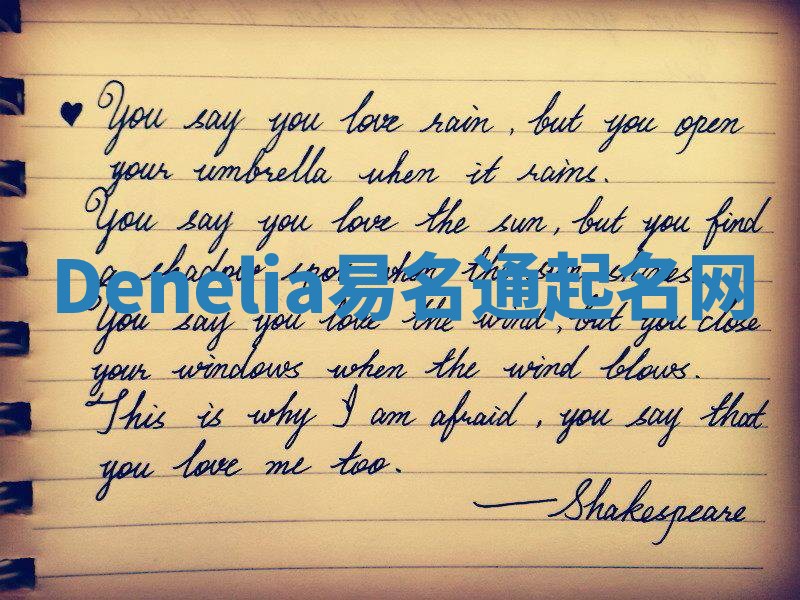 ♥ You say you love rain, but you open
your umbrella when it rains.
You say you love the sun, but you find
a shadow spot when the sun shines.
Denelia易名通起名网
You say you love the wind, but you close
your windows when the wind blows.
This is why I am afraid, you say that
you love me too.
— Shakespeare